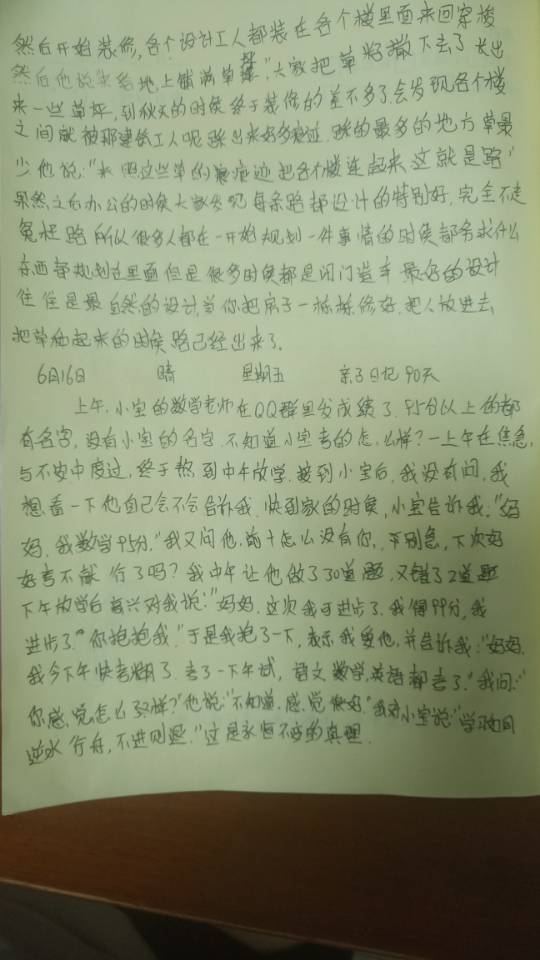 然后开始装修,各个设计工人都装在各个楼里面来回穿梭
然后他说来给地上铺满草籽。"大家把草籽撒下去了长出
来一些草坪,到秋天的时候终于装修的差不多了会发现各个楼
之间就被那建筑工人呢踩出来好多痕迹.踩的最多的地方草最
少他说:"来照这些草的痕迹把各个楼连起来这就是路"
果然之后办公的时候大家发现每条路都设计的特别好,完全不走
冤枉路所以很多人都在一开始规划一件事情的时候都务求什么
东西都规划在里面但是很多时候都是闭门造车最好的设计
往往是最自然的设计当你把房子一栋栋修好,把人放进去
把草铺起来的时候路已经出来了.
6月16日 晴 星期五 亲子日记90天
上午,小宝的数学老师在QQ群里发成绩了.95分以上的都
有名字,没有小宝的名字.不知道小宝考的怎么样?一上午在焦急
与不安中度过,终于熬到中午放学.接到小宝后,我没有问,我
想看一下他自己会不会告诉我.快到家的时候,小宝告诉我."妈
妈.我数学95分."我又问他,前十怎么没有你,别急,下次好
好考不就行了吗?我中午让他做了30道题.又错了2道题
下午放学后高兴对我说:"妈妈.这次我可进步了.我得99分,我
进步了""你抱抱我."于是我抱了一下,表示我爱他,并告诉我:"妈妈.
我今下午快考糊了.考了一下午试,语文数学,英语都考了."我问:"
你感觉怎么样?"他说:"不知道,感觉很好."我对小宝说:"学习如同
逆水行舟,不进则退."这是永恒不变的真理.